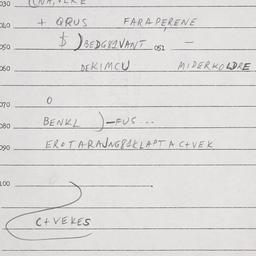 030
040 + QRUS FARAPERENE
050 $ ) BEDG81VANT 051 —
060 DEKIMCU MIDERKOLDRE
070 O
080 BENKL )—FUS...
090 EROTARAJNG81KLAPTACTVEK
100
C+VEKES